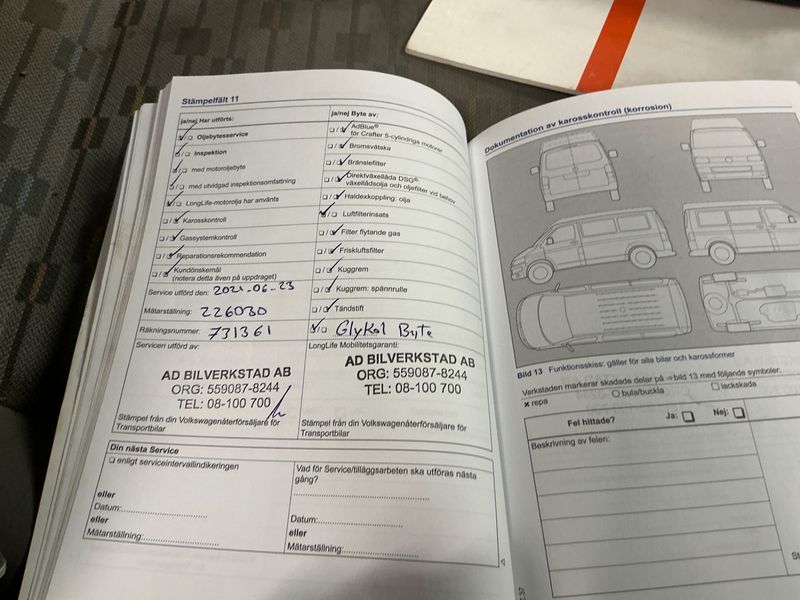 Stämpelfält 11
ja/nej Har utförts:
Oljebytesservice
Inspektion
med motoroljebyte
med utvidgad inspektionsomfattning
LongLife-motorolja har använts
Karosskontroll
Gassystemkontroll
Reparationsrekommendation
Kundönskemål
(notera detta även på uppdraget)
Service utförd den: 2021-06-23
Mätarställning: 226030
Räkningsnummer: 731361
ja/nej Byte av:
AdBlue®
för Crafter 5-cylindriga motorer
Bromsvätska
Bränslefilter
Direktväxellåda DSG®:
växellådsolja och oljefilter vid behov
Haldexkoppling: olja
Luftfilterinsats
Filter flytande gas
Friskluftsfilter
Kuggrem
Kuggrem: spännrulle
Tändstift
Glykol Byte
Servicen utförd av:
AD BILVERKSTAD AB
ORG: 559087-8244
TEL: 08-100 700
Stämpel från din Volkswagenåterförsäljare för
Transportbilar
LongLife Mobilitetsgaranti:
AD BILVERKSTAD AB
ORG: 559087-8244
TEL: 08-100 700
Stämpel från din Volkswagenåterförsäljare för
Transportbilar
Din nästa Service
enligt serviceintervallindikeringen
eller
Datum:
eller
Mätarställning:
Vad för Service/tilläggsarbeten ska utföras nästa
gång?
Datum:
eller
Mätarställning:
Dokumentation av karosskontroll (korrosion)
Bild 13 Funktionsskiss: gäller för alla bilar och karossformer
Verkstaden markerar skadade delar på ⇒bild 13 med följande symboler:
× repa
○ bula/buckla
□ lackskada
Fel hittade? Ja: Nej:
Beskrivning av felen: